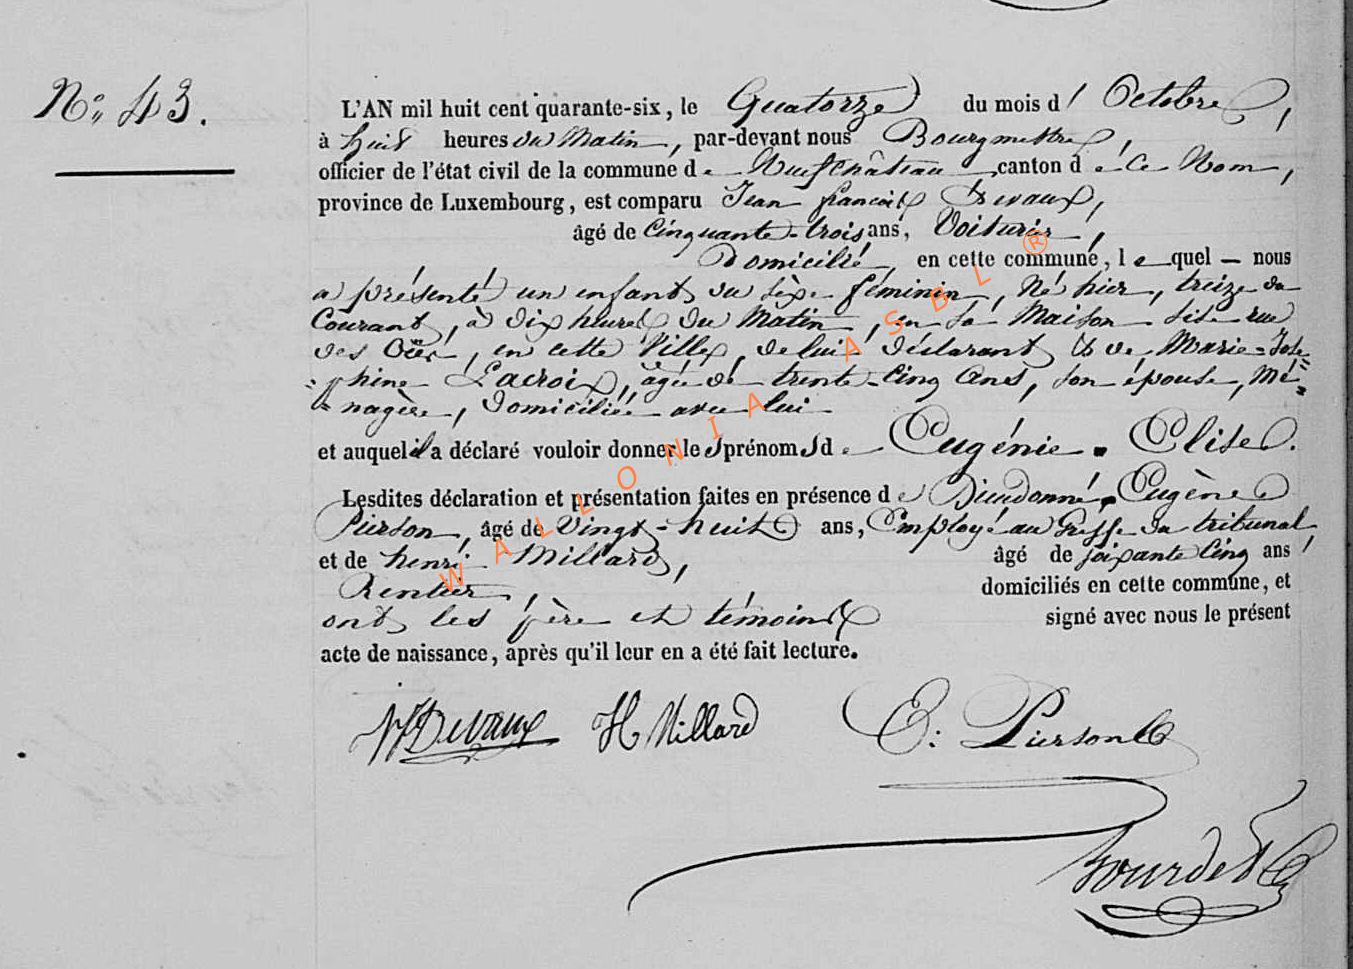 N° 43.
L'AN mil huit cent quarante-six, le Quatorze du mois d' Octobre,
à huit heures du Matin, par-devant nous Bourgmestre,
officier de l'état civil de la commune de Neufchâteau canton de Ce Nom,
province de Luxembourg, est comparu Jean françois Devaux,
âgé de Cinquante-trois ans, Voiturier,
Domicilié en cette commune, lequel — nous
a présenté un enfant du sèxe féminin, Né hier, treize du
Courant, à dix heures du Matin, en sa Maison sise rue
des, en cette Ville, de lui déclarant & de Marie-Jose-
-phine Lacroix, âgée de trente-Cinq Ans, son épouse, Mé-
-nagère, domiciliée avec lui
et auquel il a déclaré vouloir donner les prénoms d e Eugénie. Elise.
Lesdites déclaration et présentation faites en présence de Dieudonné, Eugène
Pierson, âgé de Vingt-huit ans, Employé au Greffe du tribunal,
et de henri Millard, âgé de soixante Cinq ans,
Rentier, domiciliés en cette commune, et
ont les père et témoins signé avec nous le présent
acte de naissance, après qu'il leur en a été fait lecture.
JfDevaux H Millard E: Pierson
WALLONIA ASBL ®